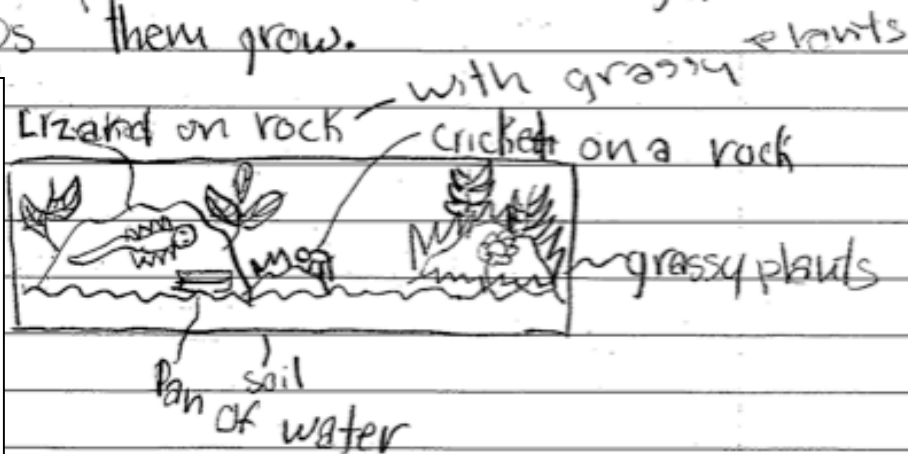 s them grow.
plants
with grassy
Lizard on rock
cricket on a rock
grassy plants
Pan of water
soil